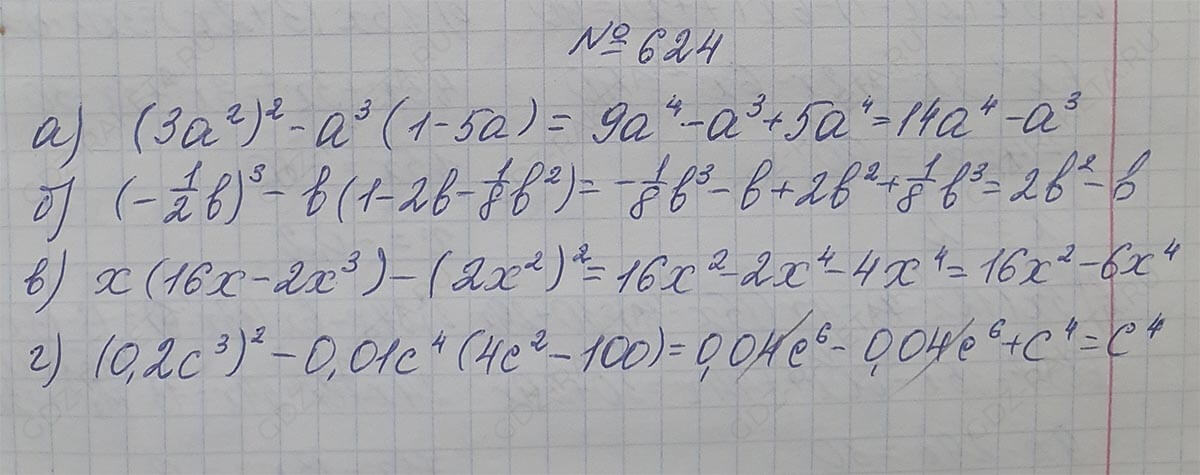 № 624
а) (3a²)² - a³ (1 - 5a) = 9a⁴ - a³ + 5a⁴ = 14a⁴ - a³
б) (-1/2 b)³ - b (1 - 2b - 1/8 b²) = -1/8 b³ - b + 2b² + 1/8 b³ = 2b² - b
в) x (16x - 2x³) - (2x²)² = 16x² - 2x⁴ - 4x⁴ = 16x² - 6x⁴
г) (0,2c³)² - 0,01c⁴ (4c² - 100) = 0,04c⁶ - 0,04c⁶ + c⁴ = c⁴